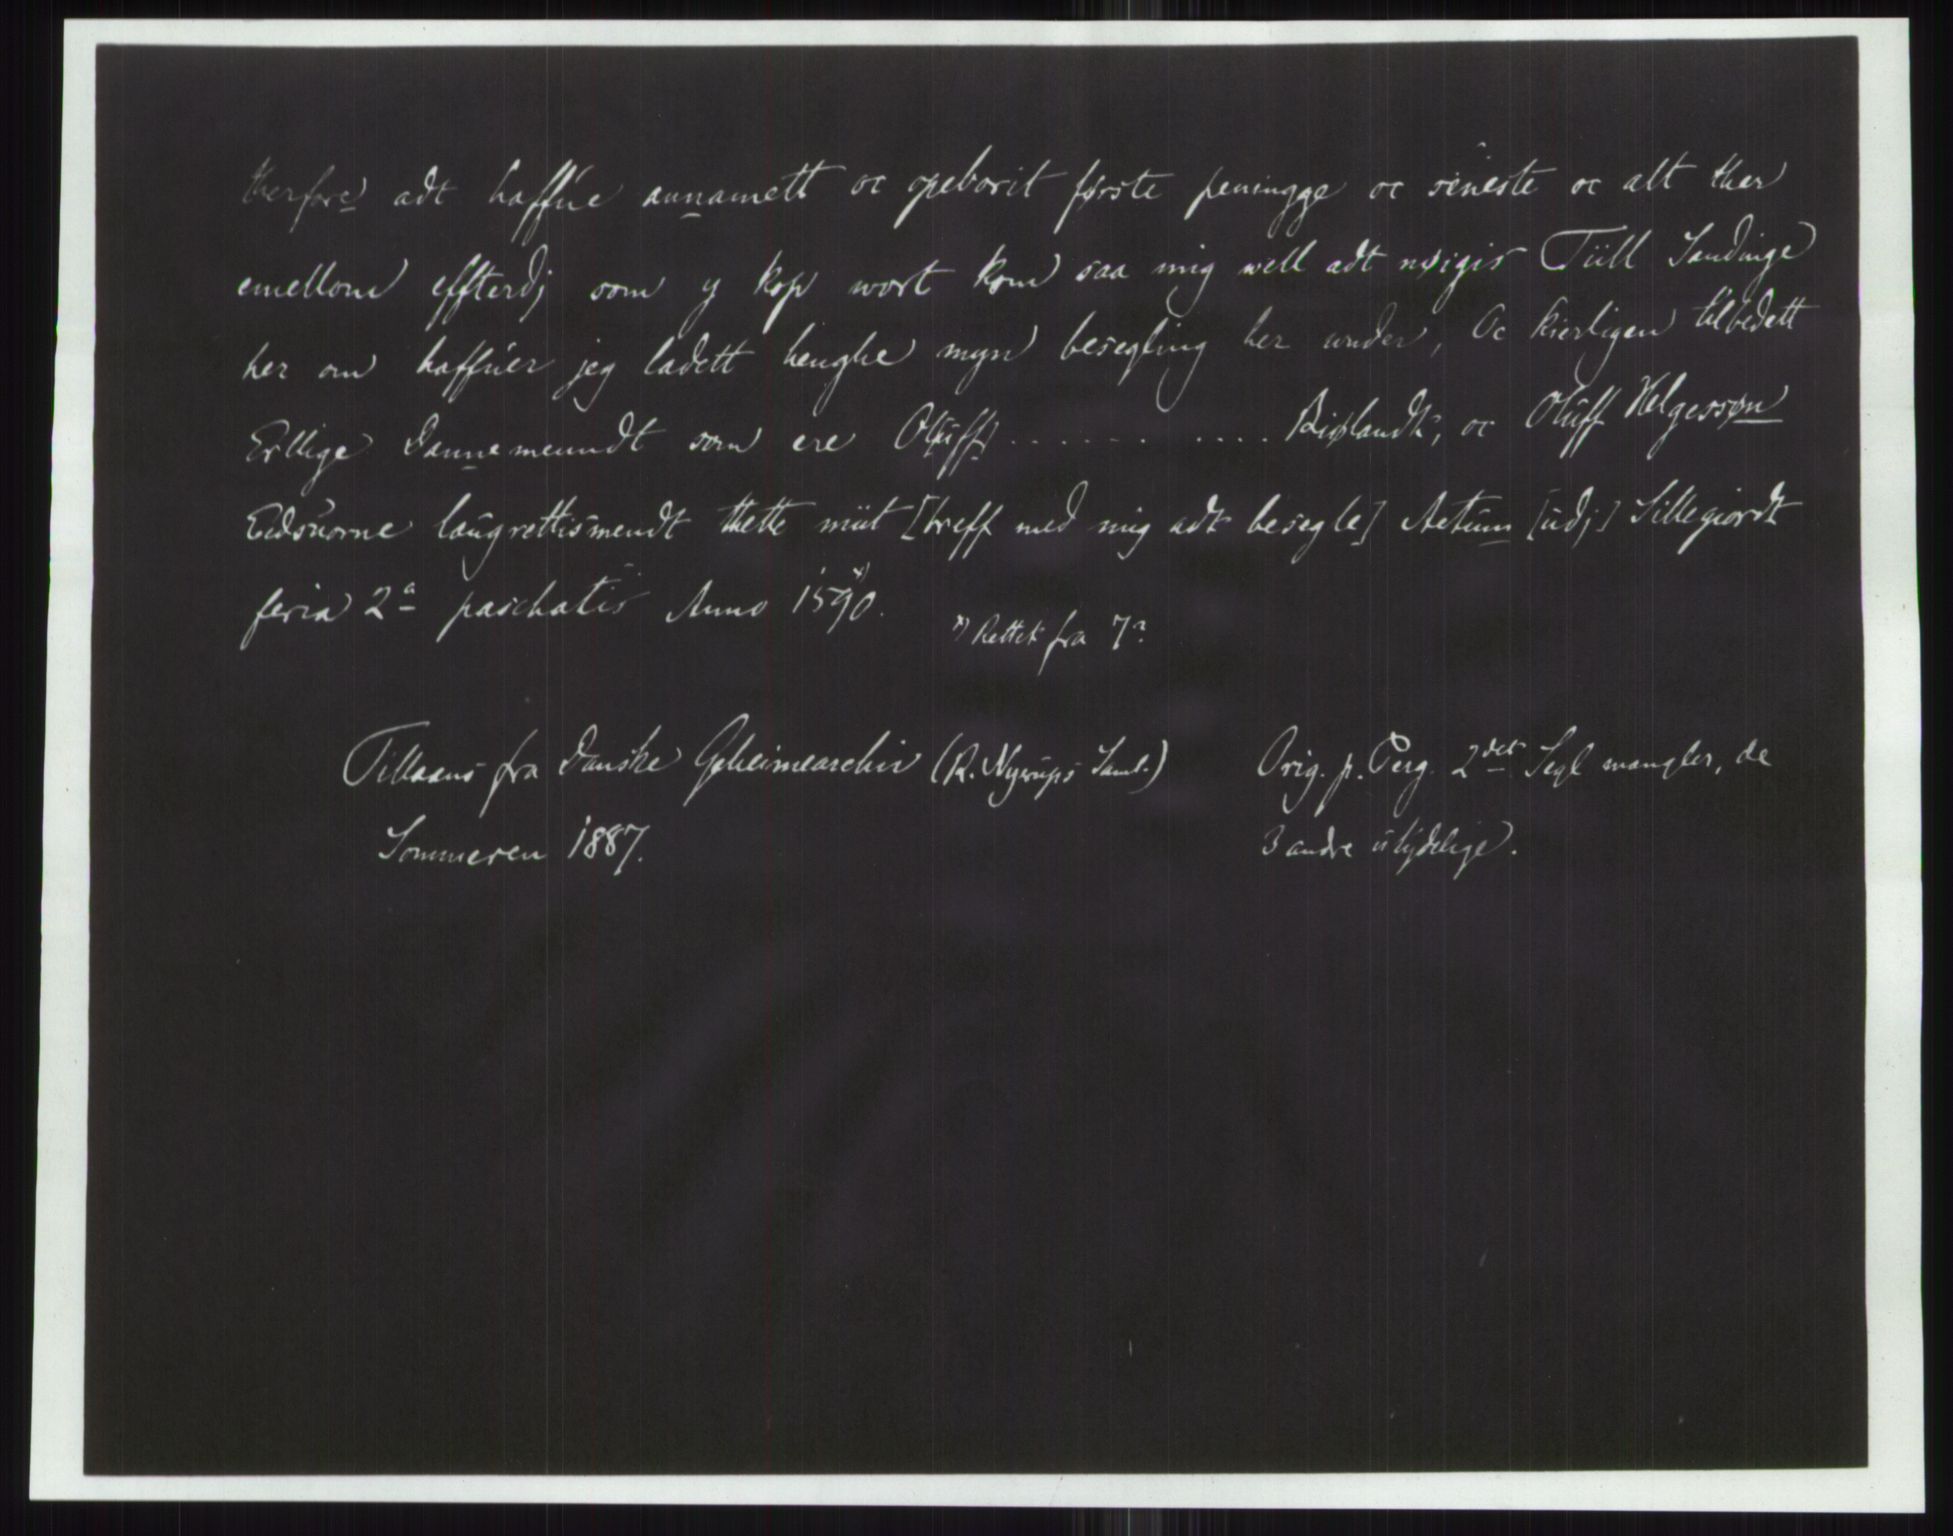 therfore adt haffue annamett oc opeborit første peningge oc seneste oc alt ther
emellom effterdj som y kop wort kom saa mig well adt nøigis Tiill Sandinge
her om haffuer jeg ladett henghe myn besegling her under, Oc kierligen tilbedett
Erllige Dannemenndt som ere Oluff .......... Biølandt, oc Oluff Helgessøn
Edsuorne laugrettismendt thette miit [breff med mig adt besegle] Actum [udj] Sillegiordt
feria 2a paschatis Anno 1590. x)
x) Rettet fra 7?
Tillaans fra Danske Geheimearchiv (R. Nyerups Saml.)
Sommeren 1887.
Orig. p. Perg. 2det Segl mangler, de
3 andre utydelige.